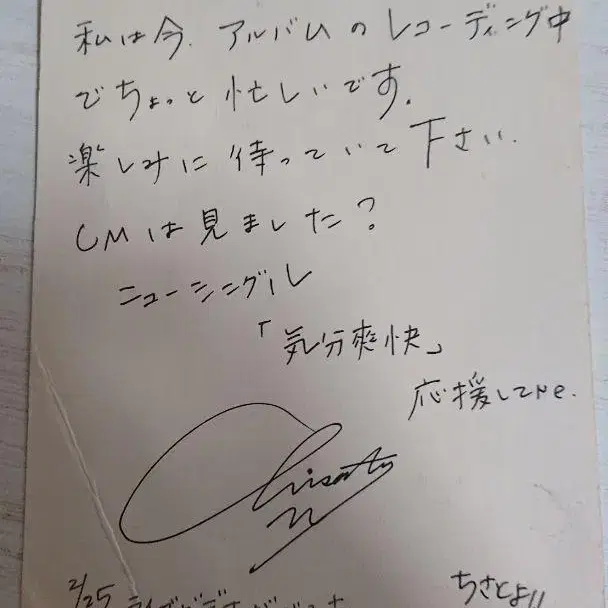 私は今、アルバムのレコーディング中
でちょっと忙しいです.
楽しみに待っていて下さい.
CMは見ました?
ニューシングル
「気分爽快」
応援してNe.
Chisato
2/25
ちさとより